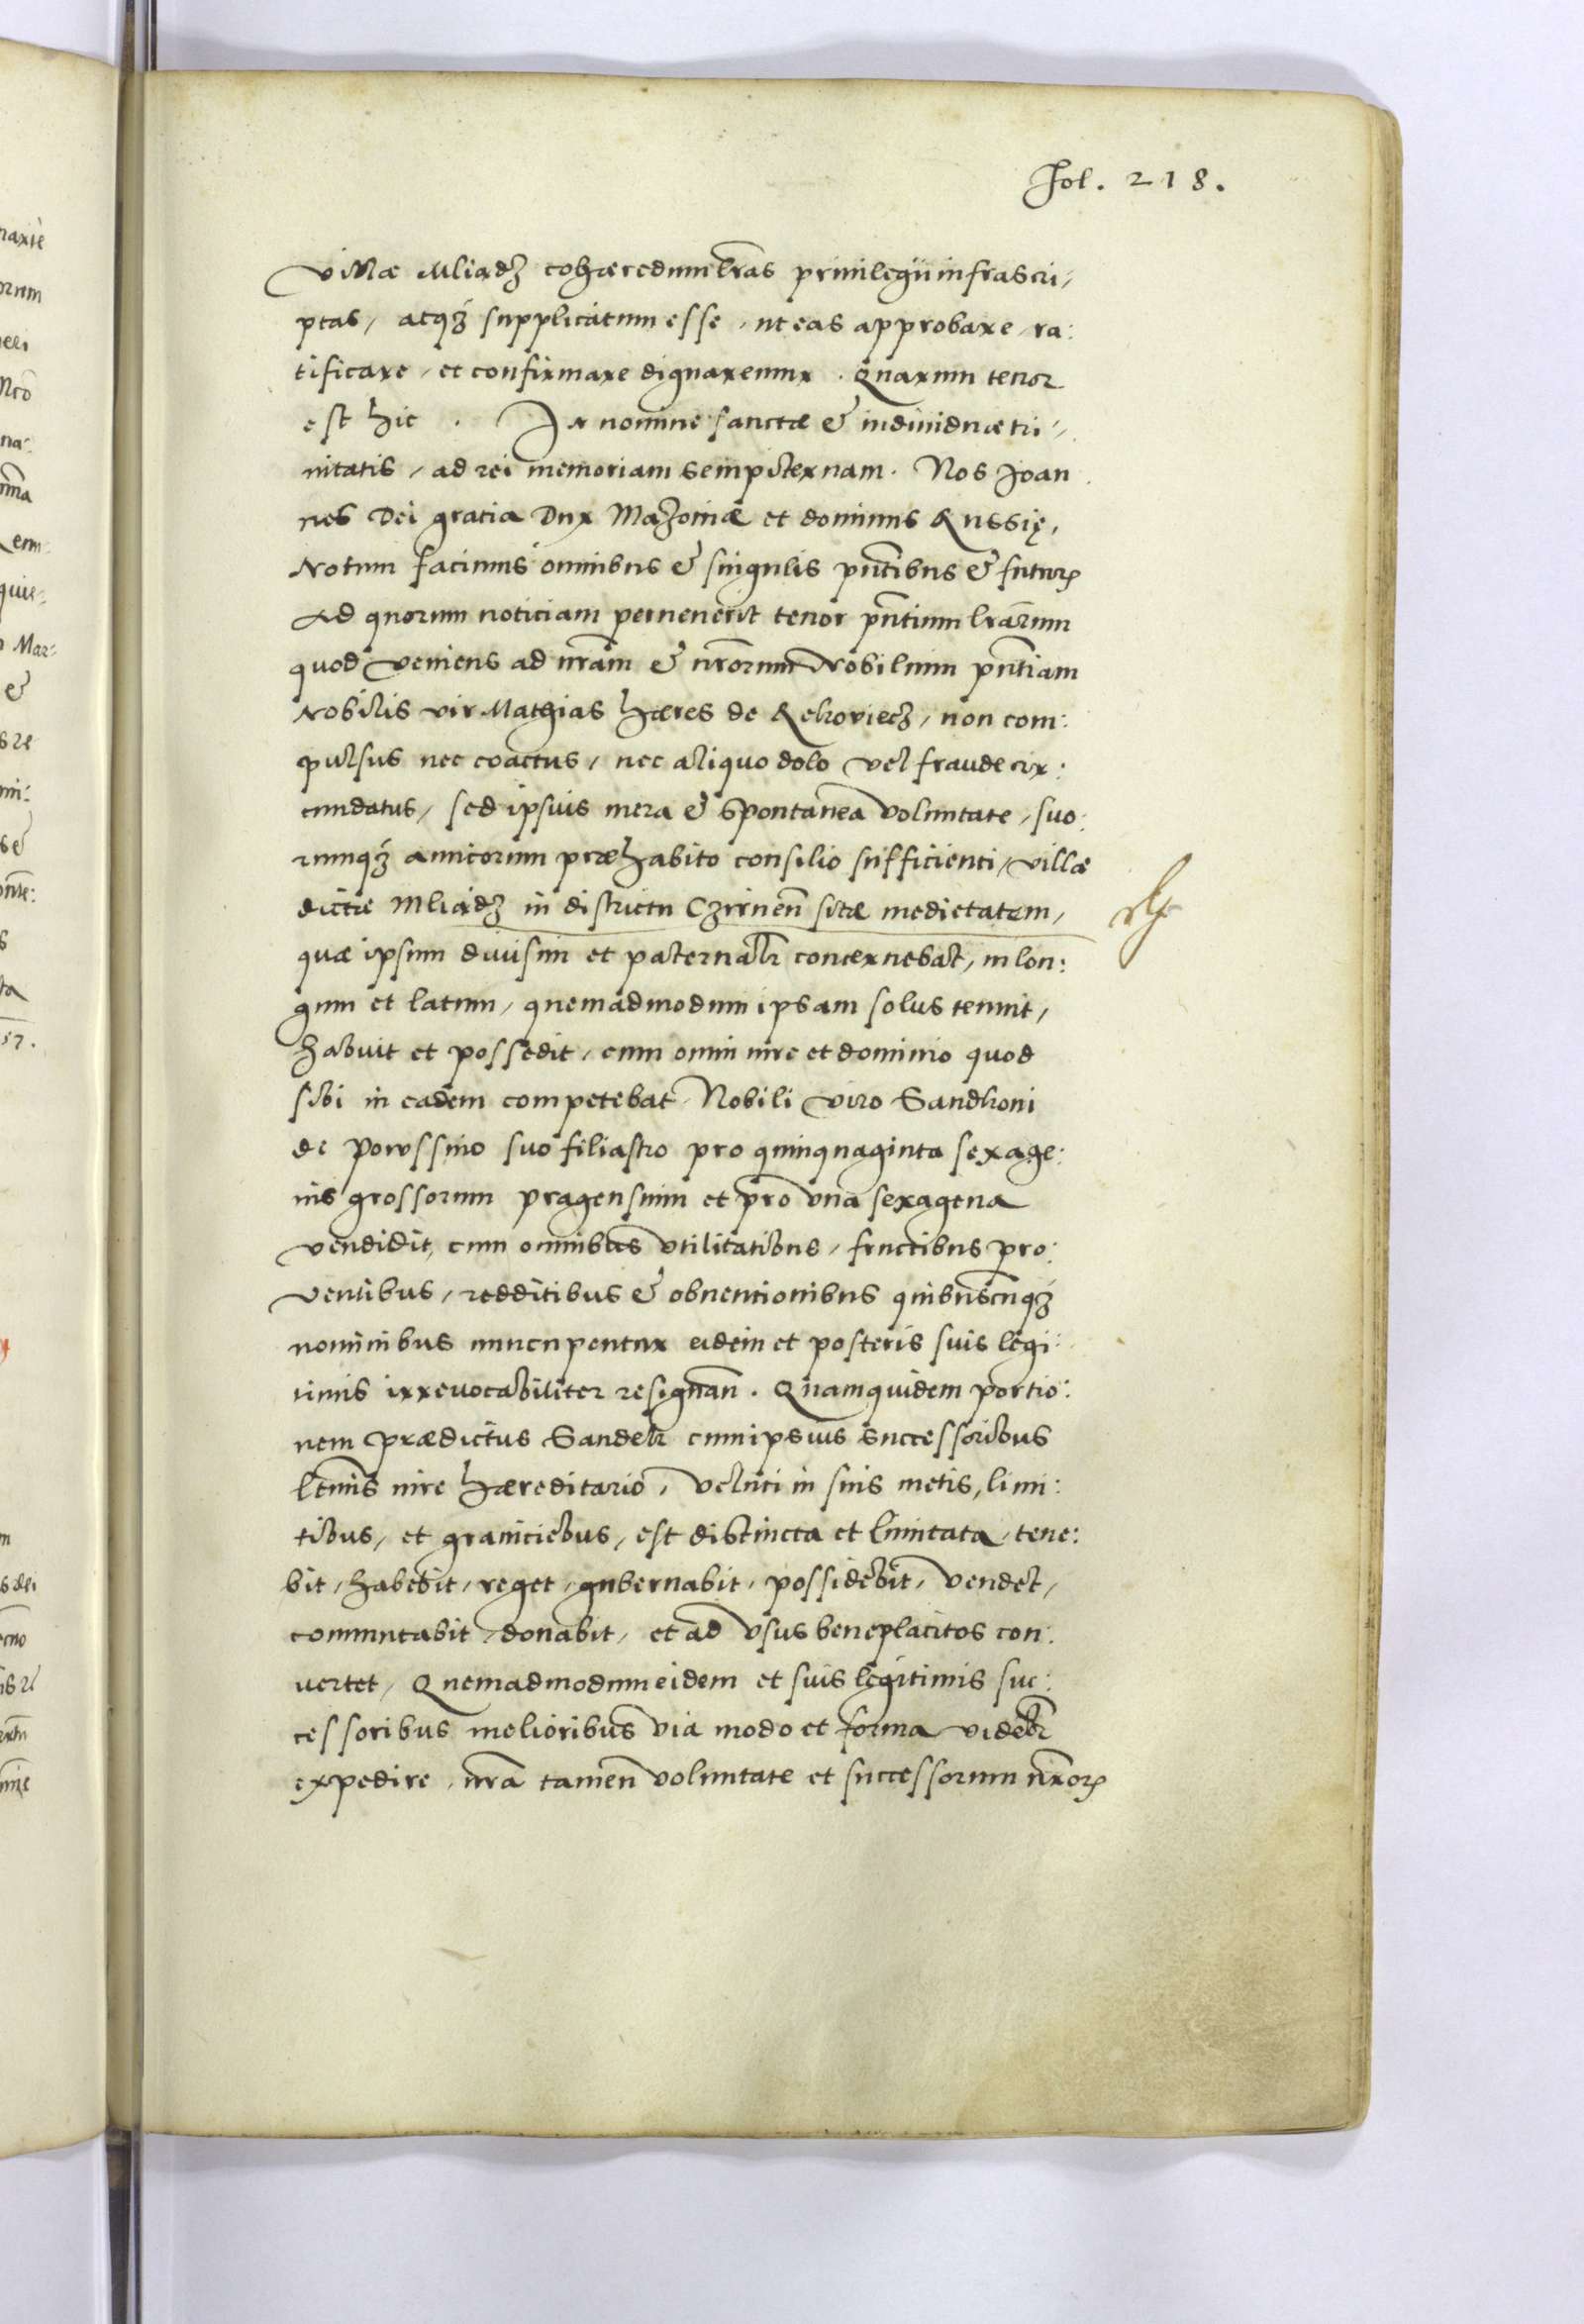 Fol. 218.
villæ Mliadz cohæredum lr̃as priuilegij infrascri,
ptas, atqʒ supplicatum esse, ut eas approbare, ra:
tificare, et confirmare dignaremur. Quarum tenor
est hic. In nomine sanctæ & indiuiduæ tri,
nitatis, ad rei memoriam sempiternam. Nos Joan
nes Dei gratia Dux Mazouiæ et dominus Russię,
Notum facimus omnibus & singulis pñtibus & futurꝝ
Ad quorum noticiam peruenerit tenor pñtium lr̃arum
quod veniens ad nr̃am & nr̃orum Nobilium pñtiam
Nobilis vir Mathias hæres de Rekoviecz, non com:
pulsus nec coactus, nec aliquo dolo vel fraude cir:
cundatus, sed ipsius mera & spontanea voluntate, suo:
rumqʒ amicorum præhabito consilio sufficienti, villæ
dictæ Mliadz in districtu Czirneñ sitæ medietatem,
quæ ipsum diuisim et paternalr̃ concernebat, in lon:
gum et latum, quemadmodum ipsam solus tenuit,
habuit et possedit, cum omni iure et dominio quod
sibi in eadem competebat Nobili viro Sandkoni
de Powssino suo filiastro pro quinquaginta sexage:
nis grossorum pragensium et pro vna sexagena
vendidit, cum omnibus vtilitatibus, fructibus pro:
ventibus, redditibus & obuentionibus quibuscunqʒ
nominibus nuncupentur eidem et posteris suis legi:
timis irreuocabiliter resignañ. Quamquidem portio:
nem prædictus Sandek cum ipsius successoribus
ltimis iure hæreditario, veluti in suis metis, limi:
tibus, et graniciebus, est distincta et limitata, tene:
bit, habebit, reget, gubernabit, possidebit, vendet,
commutabit, donabit, et ad vsus beneplacitos con:
uertet, Quemadmodum eidem et suis legitimis suc:
cessoribus melioribus via modo et forma videbr̃
expedire, nr̃a tamen voluntate et successorum nr̃orꝝ